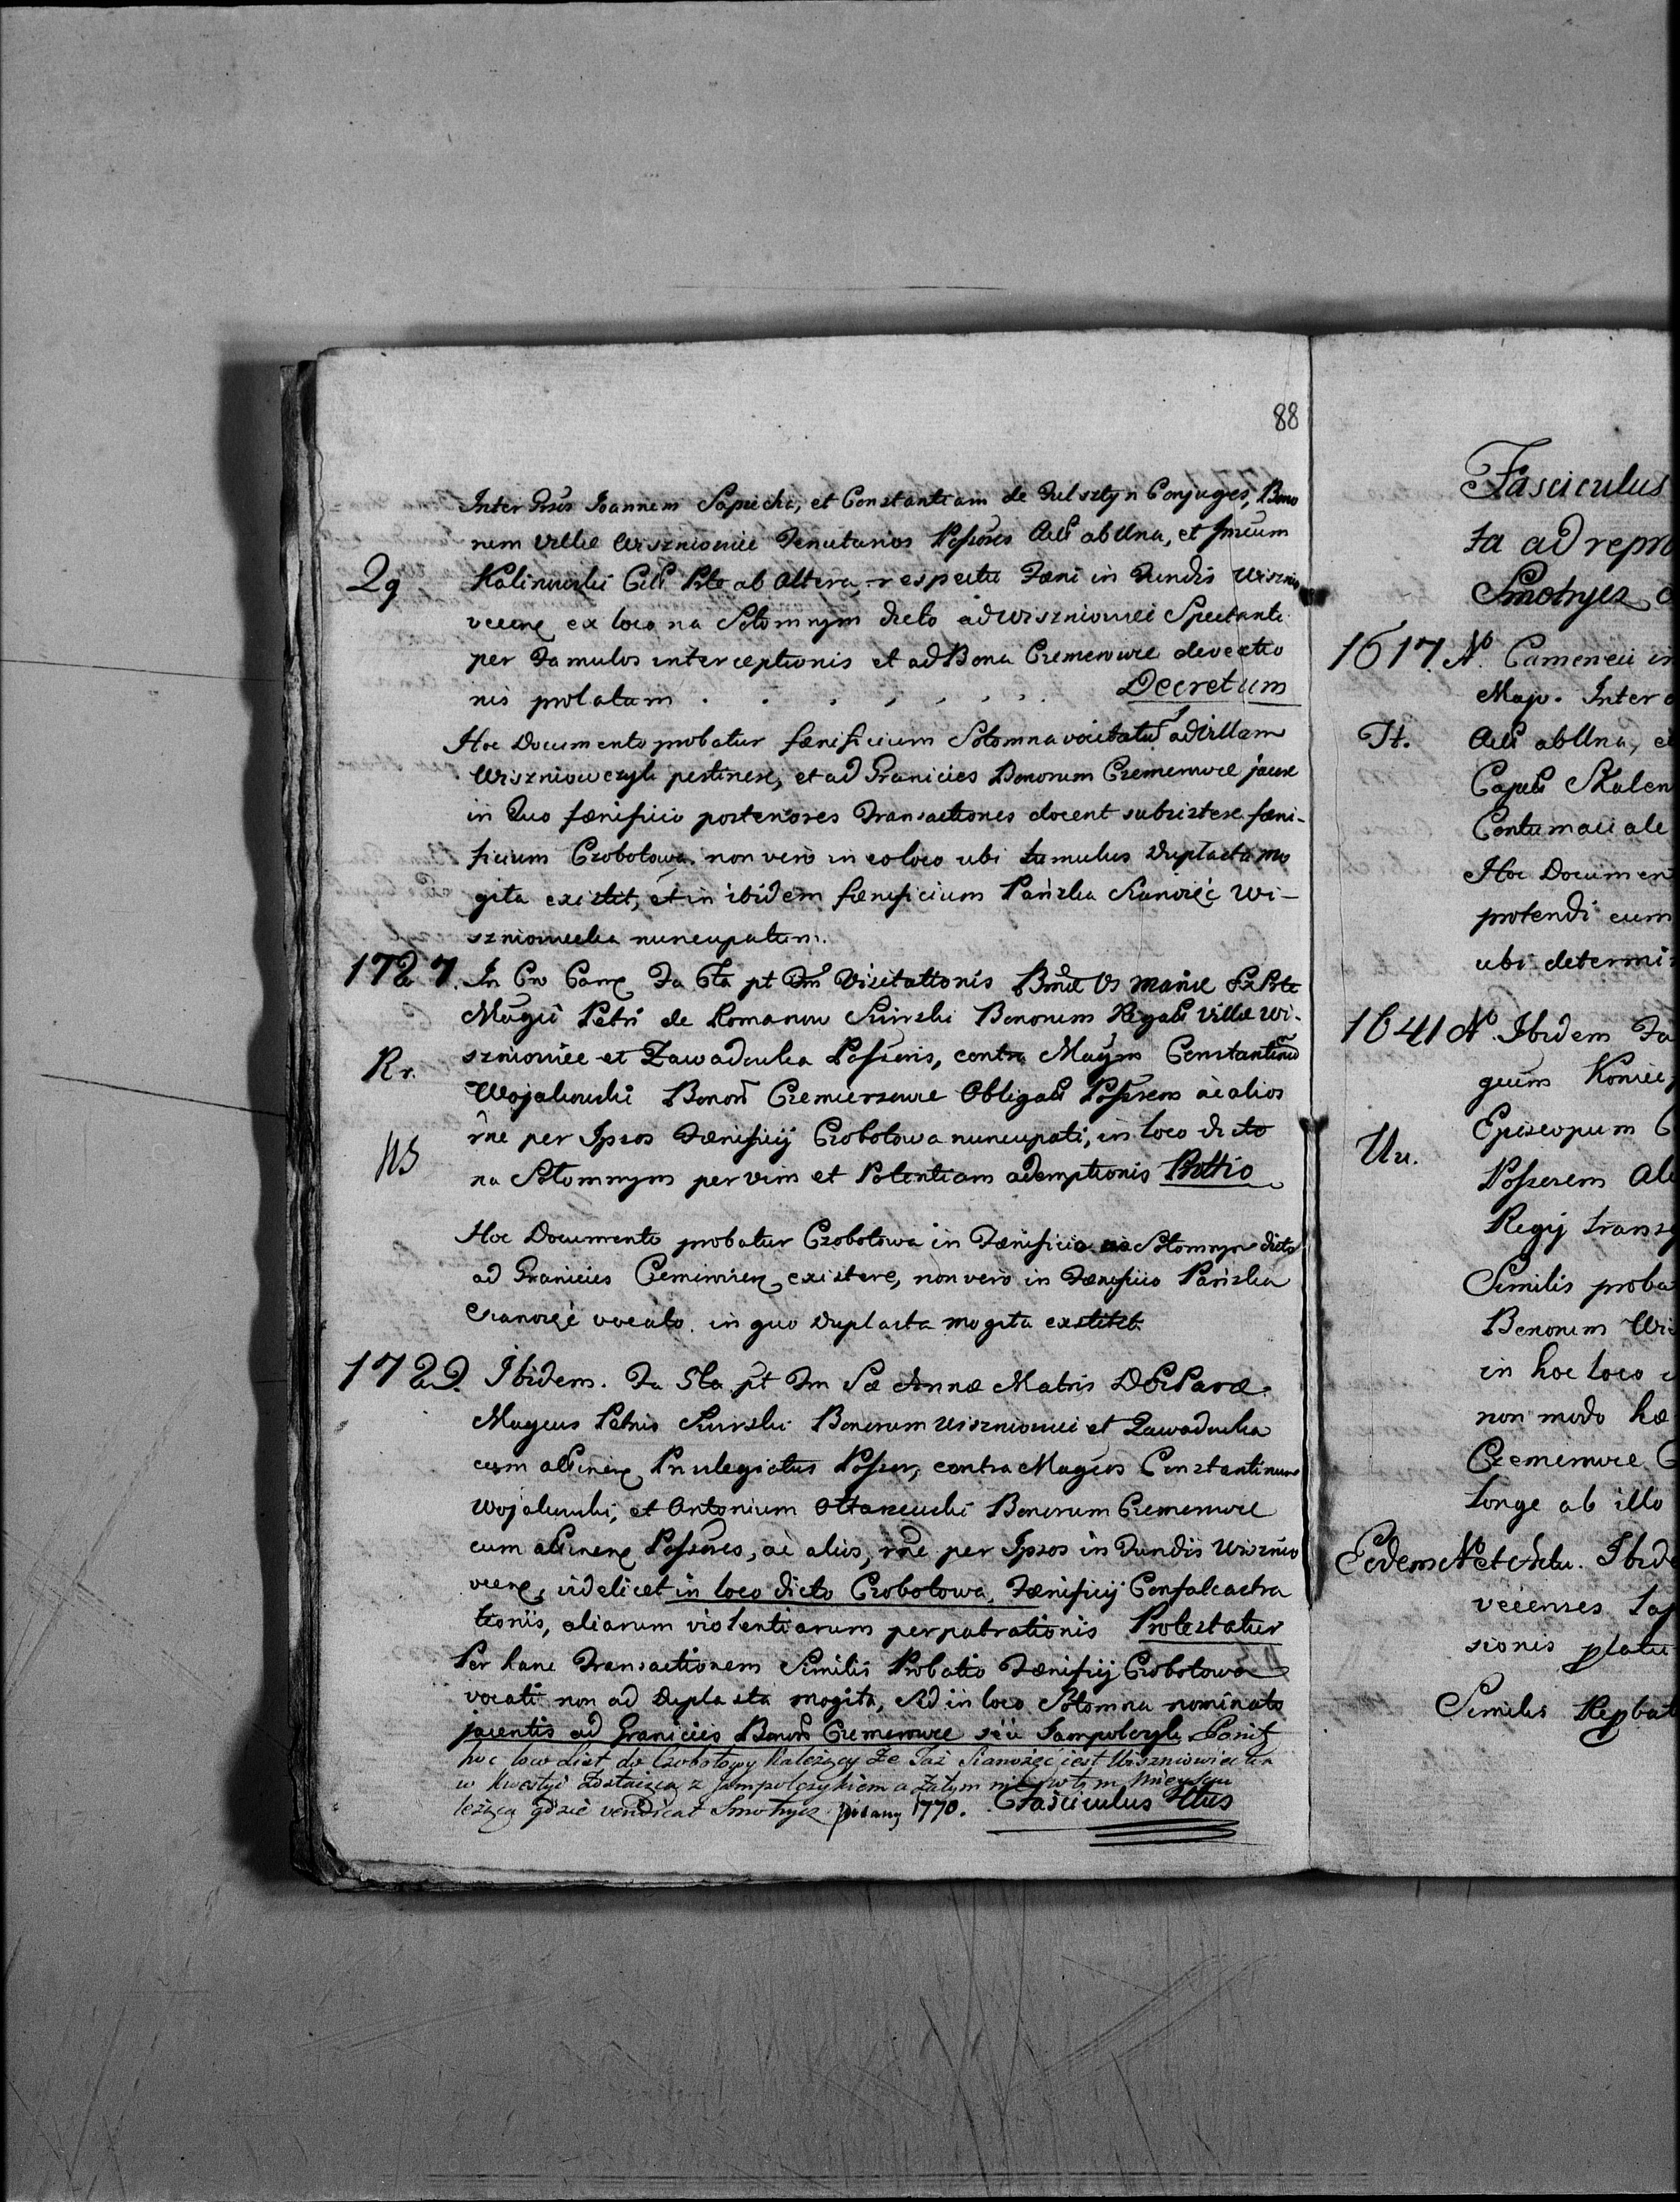 88
Inter Gnsos Joannem Sapiecha, et Constantiam de Fulsztyn Conjuges, Bono
rum Villæ Wiszniowiec Tenutarios Possores Acts ab Una, et
Qq Kalinowski Citt Pte ab Altera, respectu Fæni in Fundis Wisznio
vecen ex loco na Sołomnym dicto ad Wiszniowiec Spectanti
per Famulos interceptionis et ad Bona Czemerowce devectio
nis prolatum . . . . . . . Decretum
Hoc Documento probatur fænificium Sołomna vocitatu ad Villam
Wiszniowczyk pertinere, et ad Granicies Bonorum Czemerowce jacere
in Quo fænificio posteriores Transactiones docent subsistere fæni-
ficium Czobotowa. non vero in eo loco ubi tumulus Duplasta mo
giła existit, et in ibidem fænificium Pańska Sianożęć Wi-
szniowiecka nuncupatum.
1727. In Cro Camen Fa 6ta pt Fm Visitattonis Bmæ Vs Mariæ Ex Pte
Magci Petri de Romanow Swirski Bonorum Regal Villæ Wi-
Rr. szniowiec et Zawadowka Possoris, contra Magcm Constantinu
Wojakowski Bonor Czemierowce Obligat Possorem ac alios
rne per Ipsos Fænificij Czobotowa nuncupati, in loco dicto
NS na Sołomnym per vim et Potentiam ademptionis Prottio
Hoc Documento probatur Czobotowa in Fænificio na Sołomnym dicto
ad Granicies Czemerowien existere, non vero in Fænificio Pańska
Sianożęć vocato. in quo Duplasta mogiła existit.
1729. Ibidem. Fa 5ta pt Fm Sæ Annæ Matris D
Magcus Petrus Swirski Bonorum Wiszniowiec et Zawadowka
cum attinen Privilegiatus Possor, contra Magcos Constantinum
Wojakowski, et Antonium Bonorum Czemerowce
cum attinen Possores, ac alios, rne per Ipsos in Fundis Wisznio
vecen, videlicet in loco dicto Czobotowa Fænificij Confalcastra
tionis, aliarum violentiarum perpatrationis Protestatur
Per hanc Transactionem Similis Probatio Fænificij Czobotowa
vocati non ad Dupla sta mogiła, sed in loco Sołomna nominato
jacentis ad Granicies Bonor Czemerowce seu Jampolczyk
hoc loco do Czobotowy należący Ze Taż Sianożęć iest Wiszniowiecka
w Kwestyi Zostaiąca z Jampolczykiem a Zatym nie w tym Mieyscu
leżąca gdzie vendicat Smotrycz pisany 1770. Fasciculus

Fasciculus
ta ad repro
Smotrycz
1617. N. Camenecii in
Majo. Inter
Tt. Acts ab Una, e
Capta Skalen
Contumaciale
Hoc Documen
protendi cum
ubi determi
1641 N Ibidem Fa
gcum Koniec
Episcopum
Uu. Possorem
Regij trans
Similis proba
Bonorum Wi
in hoc loco
non modo hæ
Czemerowce
longe ab illo
Eodem N et Actu. Ibid
vecenses
sionis platu
Similis